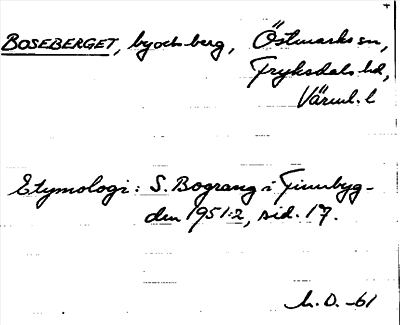 BOSEBERGET, by och berg, Östmarks sn,
Fryksdals hd,
Värml. l
Etymologi: S. Bograng i Finnbyg-
den 1951:2, sid. 17.
M.D. -61